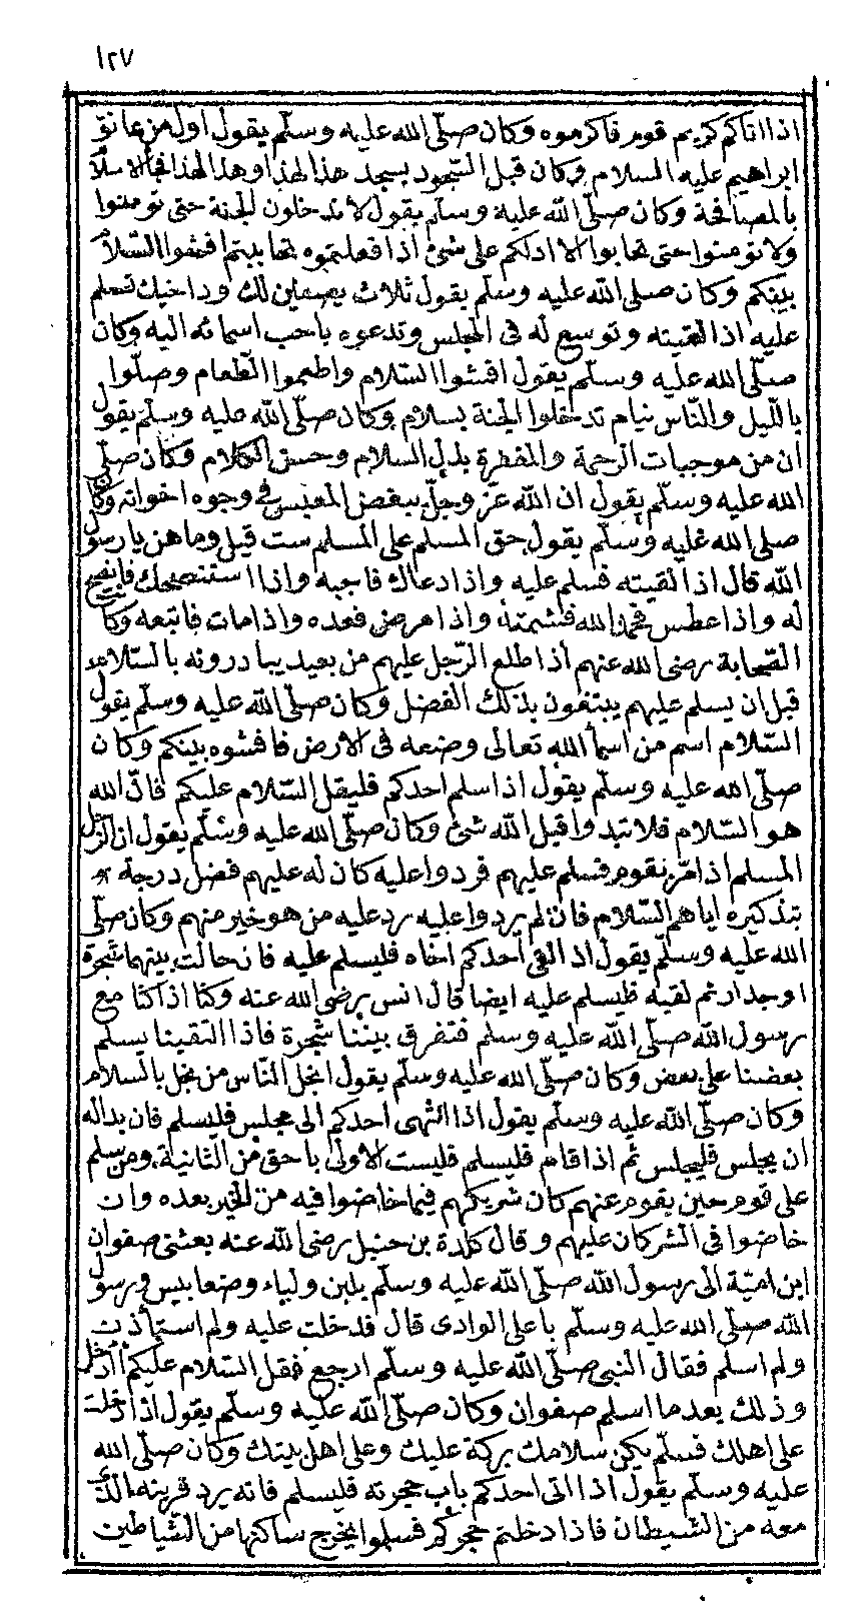 ١٢٧
اذا اتاكم كريم قوم فاكرموه وكان صلّى الله عليه وسلّم يقول اول من عانق
ابراهيم عليه السلام وكان قبل السّجود يسجد هذا لهذا وهذا لهذا فجأ الاسلام
بالمصافحة وكان صلّى الله عليه وسلّم يقول لا تدخلون الجنة حتى تؤمنوا
ولا تؤمنوا حتى تحابوا الا ادلكم على شئ اذا فعلتموه تحاببتم افشوا السّلام
بينكم وكان صلى الله عليه وسلّم يقول ثلاث يصفين لك ود اخيك تسلم
عليه اذا لقيته وتوسع له فى المجلس وتدعوه باحب اسمائه اليه وكان
صلّى الله عليه وسلّم يقول افشوا السّلام واطعموا الطّعام وصلّوا
بالليل والنّاس نيام تدخلوا الجنة بسلام وكان صلّى الله عليه وسلّم يقول
ان من موجبات الرحمة والمغفرة بذل السلام وحسن الكلام وكان صلّى
الله عليه وسلّم يقول ان الله عزّ وجلّ يبغض المعبّس فى وجوه اخوانه وكان
صلى الله عليه وسلّم يقول حق المسلم على المسلم ست قيل وما هن يا رسول
الله قال اذا لقيته فسلم عليه واذا دعاك فاجبه واذا استنصحك فانصح
له واذا عطس فحمد الله فشمته واذا مرض فعده واذا مات فاتبعه وكان
الصّحابة رضى الله عنهم اذا طلع الرّجل عليهم من بعيد يبادرونه بالسّلام
قبل ان يسلم عليهم يبتغون بذلك الفضل وكان صلّى الله عليه وسلّم يقول
السّلام اسم من اسمأ الله تعالى وضعه فى الارض فافشوه بينكم وكان
صلّى الله عليه وسلّم يقول اذا سلم احدكم فليقل السّلام عليكم فانّ الله
هو السّلام فلا تبدوا قبل الله شئ وكان صلّى الله عليه وسلّم يقول ان الرّجل
المسلم اذا مرّ بقوم فسلم عليهم فردوا عليه كان له عليهم فضل درجة
بتذكيره اياهم السّلام فان لم يردوا عليه رد عليه من هو خير منهم وكان صلّى
الله عليه وسلّم يقول اذ القى احدكم اخاه فليسلم عليه فان حالت بينهما شجرة
او جدار ثم لقيه فليسلم عليه ايضا قال انس رضى الله عنه وكنا اذا كنا مع
رسول الله صلّى الله عليه وسلّم فتفرق بيننا شجرة فاذا التقينا يسلم
بعضنا على بعض وكان صلّى الله عليه وسلّم يقول ابخل النّاس من بخل بالسلام
وكان صلّى الله عليه وسلّم يقول اذا انتهى احدكم الى مجلس فليسلم فان بداله
ان يجلس فليجلس ثم اذا قام فليسلم فليست الاولى باحق من الثانية ومن سلم
على قوم حين يقوم عنهم كان شريكهم فيما خاضوا فيه من الخير بعده وان
خاضوا فى الشر كان عليهم وقال كلدة بن حنبل رضى الله عنه بعثنى صفوان
ابن اميّة الى رسول الله صلّى الله عليه وسلّم بلبن ولباء وضعابيس ورسول
الله صلّى الله عليه وسلّم باعلى الوادى قال فدخلت عليه ولم استأذن
ولم اسلم فقال النبى صلّى الله عليه وسلّم ارجع فقل السّلام عليكم أأدخل
وذلك بعد ما اسلم صفوان وكان صلّى الله عليه وسلّم يقول اذا دخلت
على اهلك فسلّم يكن سلامك بركة عليك وعلى اهل بيتك وكان صلّى الله
عليه وسلّم يقول اذا اتى احدكم باب حجرته فليسلم فانه يرد قرينه الّذى
معه من الشيطان فاذا دخلتم حجركم فسلموا يخرج ساكنها من الشّياطين